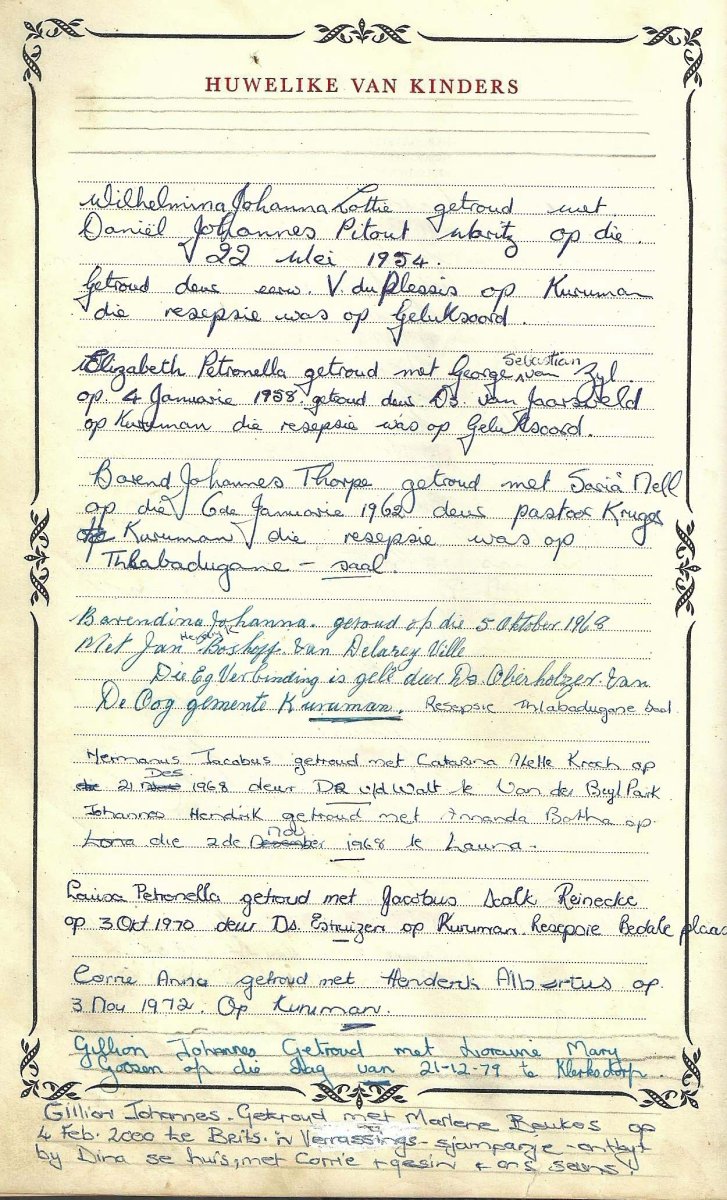 HUWELIKE VAN KINDERS
Wilhelmina Johanna Lottie getroud met
Daniël Johannes Pitout Maritz op die
22 Mei 1954.
Getroud deur eerw. V. du Plessis op Kuruman
die resepsie was op Geluksoord.
Elizabeth Petronella getroud met George Sebastian van Zyl
op 4 Januarie 1958 getroud deur Ds. van Jaarsveld
op Kuruman die resepsie was op Geluksoord.
Barend Johannes Thorpe getroud met Saria Nell
op die 6de Januarie 1962 deur pastoor Kruger
op Kuruman die resepsie was op
Thlabadugane - saal.
Barendina Johanna. getroud op die 5 Oktober 1968
Met Jan Hendrik Boshoff. van Delarey Ville
Die Eg Verbinding is gelê deur Ds. Oberholzer. van
De Oog gemente Kuruman. Resepsie Thlabadugane Saal.
Hermanus Jacobus getroud met Catarina Krech op
die 21 Des 1968 deur DR v/d Walt te Van der Bejl Park
Johannes Hendrik getroud met Amanda Botha op
die 2de Nov 1968 te Launa.
Louisa Petronella getroud met Jacobus Scalk Reinecke
op 3 Okt 1970 deur Ds. Estruizen op Kuruman Resepsie Bedale plaas
Corrie Anna getroud met Henderik Albertus op
3 Nov 1972. Op Kuruman.
Gillion Johannes Getroud met Loraine Mary
Goosen op die dag van 21-12-79 te Klerksdorp.
Gillion Johannes. Getroud met Marlene Beukes op
4 Feb. 2000 te Brits. 'n Verrassings - sjampanje - ontbyt
by Dina se huis, met Corrie + gesin + ons seuns.